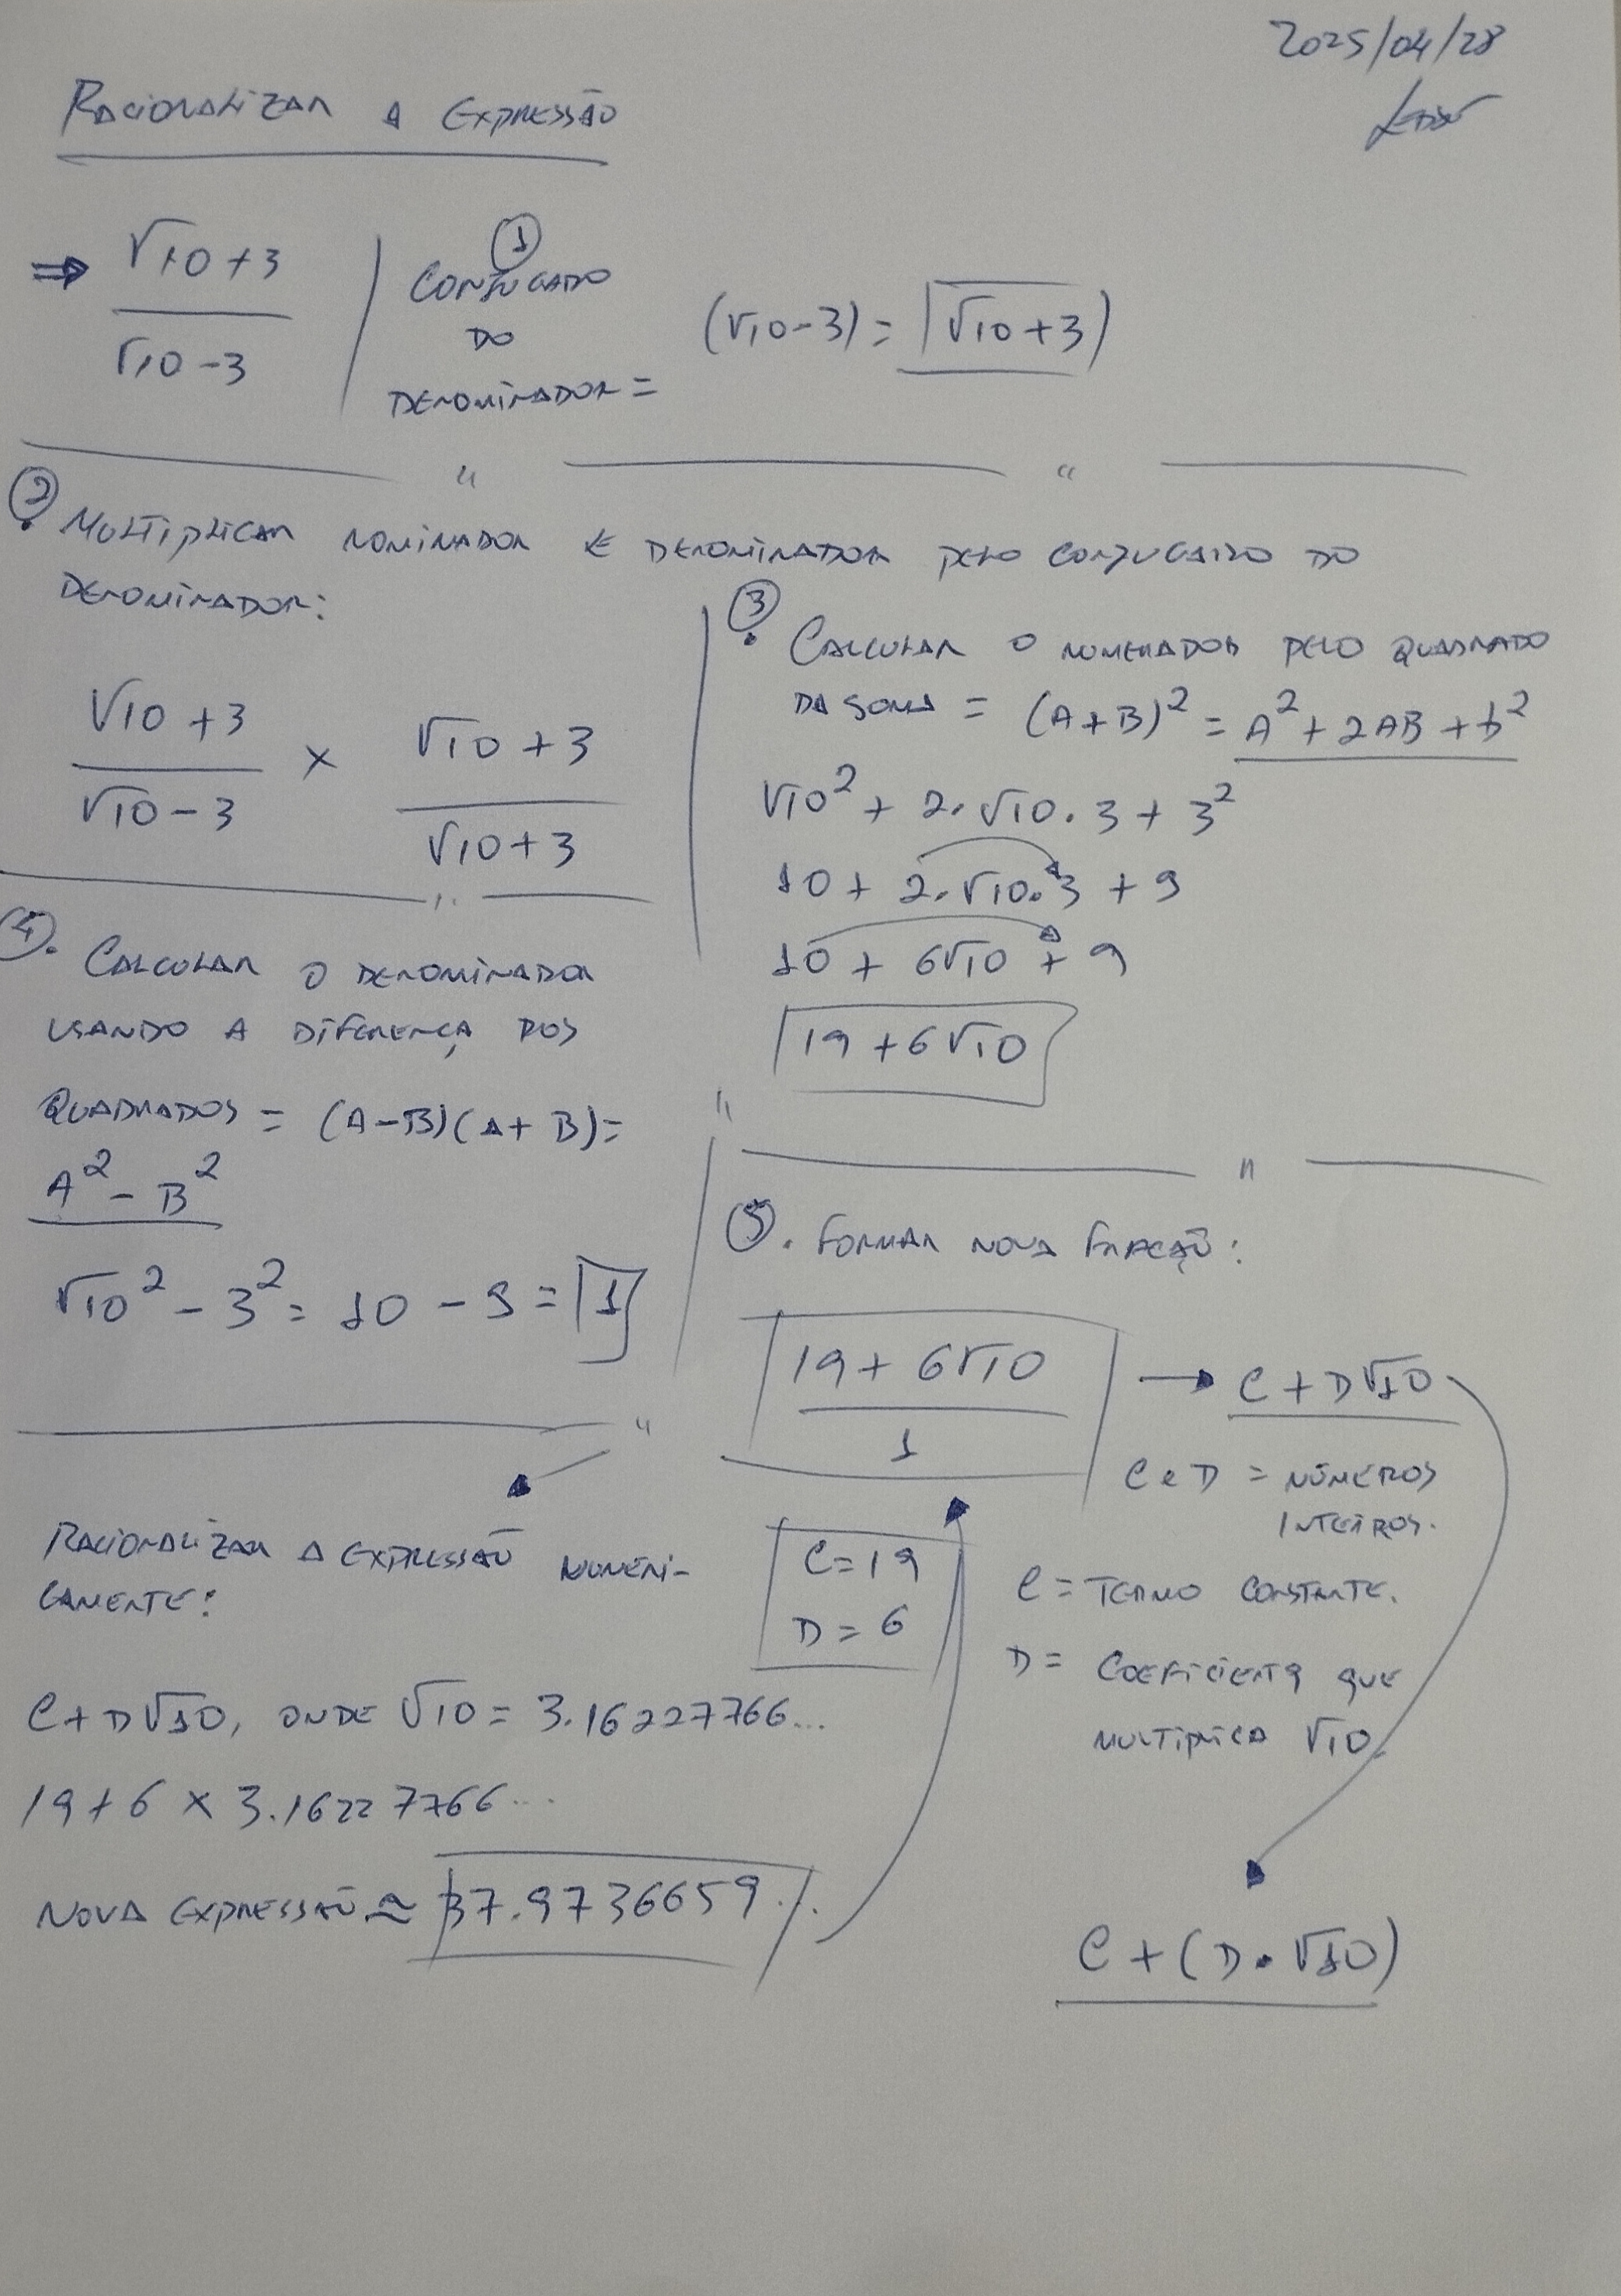 2025/04/28
RACIONALIZAR A EXPRESSÃO
⇒ √10 + 3 / √10 - 3
①
CONJUGADO
DO
DENOMINADOR =
(√10 - 3) = √10 + 3)
② MULTIPLICAR NOMINADOR E DENOMINADOR PELO CONJUGADO DO
DENOMINADOR:
√10 + 3 / √10 - 3 × √10 + 3 / √10 + 3
③ CALCULAR O NUMERADOR PELO QUADRADO
DA SOMA = (A+B)² = A² + 2AB + b²
√10² + 2.√10.3 + 3²
10 + 2.√10.3 + 9
10 + 6√10 + 9
19 + 6√10
④. CALCULAR O DENOMINADOR
USANDO A DIFERENÇA DOS
QUADRADOS = (A-B)(A+B)=
A² - B²
√10² - 3² = 10 - 9 = 1
⑤. FORMAR NOVA FRAÇÃO:
19 + 6√10 / 1 → C + D√10
C e D = NÚMEROS
INTEIROS.
C=19
D=6
C = TERMO CONSTANTE.
D = COEFICIENTE QUE
MULTIPLICA √10.
C + (D.√10)
RACIONALIZAR A EXPRESSÃO NUMERI-
CAMENTE:
C + D√10, ONDE √10 = 3.16227766...
19 + 6 × 3.16227766...
NOVA EXPRESSÃO ≈ 37.9736659...